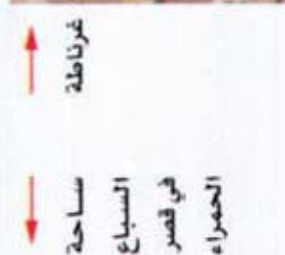 غرناطة
ساحة
السباع
في قصر
الحمراء